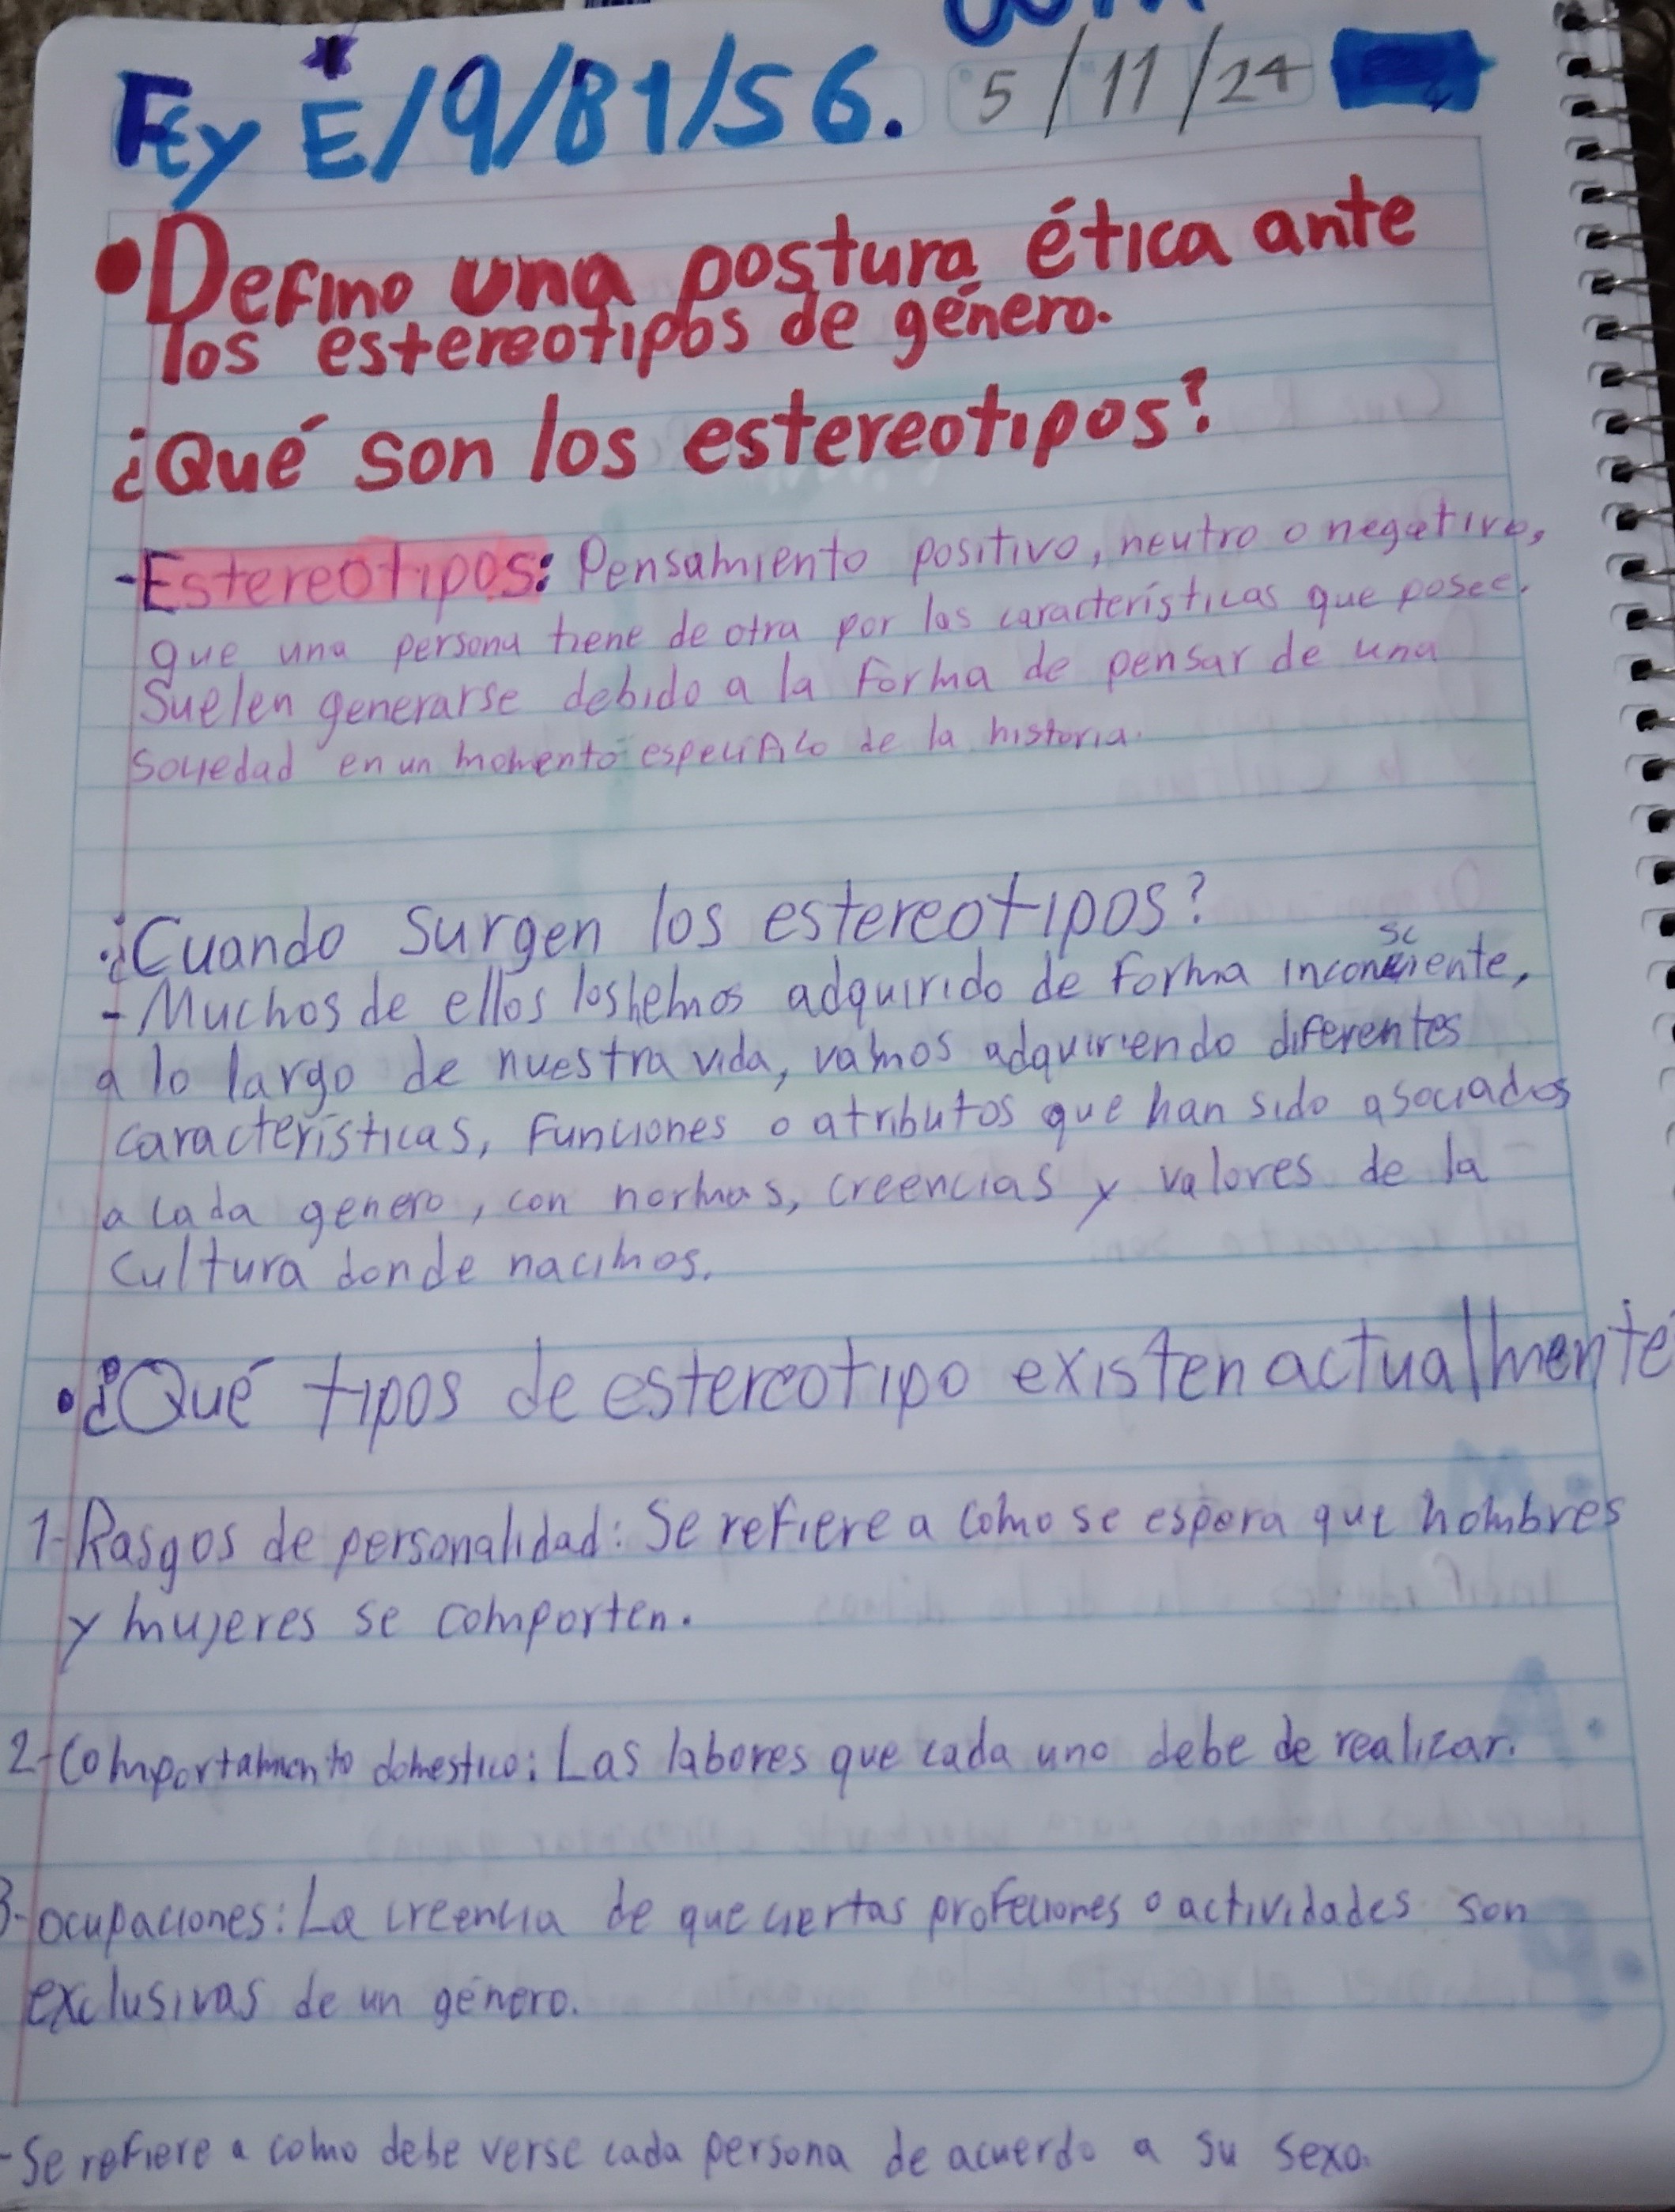 F C y E/9/B1/S6. 5/11/24
•Defino una postura ética ante
los estereotipos de género.
¿Qué son los estereotipos?
-Estereotipos: Pensamiento positivo, neutro o negativo,
que una persona tiene de otra por las características que posee.
Suelen generarse debido a la forma de pensar de una
sociedad en un momento específico de la historia.
•¿Cuando surgen los estereotipos?
-Muchos de ellos los hemos adquirido de forma inconsciente,
a lo largo de nuestra vida, vamos adquiriendo diferentes
características, funciones o atributos que han sido asociados
a cada genero, con normas, creencias y valores de la
cultura donde nacimos.
•¿Qué tipos de estereotipo existen actualmente
1-Rasgos de personalidad: Se refiere a como se espera que hombres
y mujeres se comporten.
2-Comportamiento domestico: Las labores que cada uno debe de realizar.
3-ocupaciones: La creencia de que ciertas profeciones o actividades son
exclusivas de un género.
-Se refiere a como debe verse cada persona de acuerdo a su sexo.